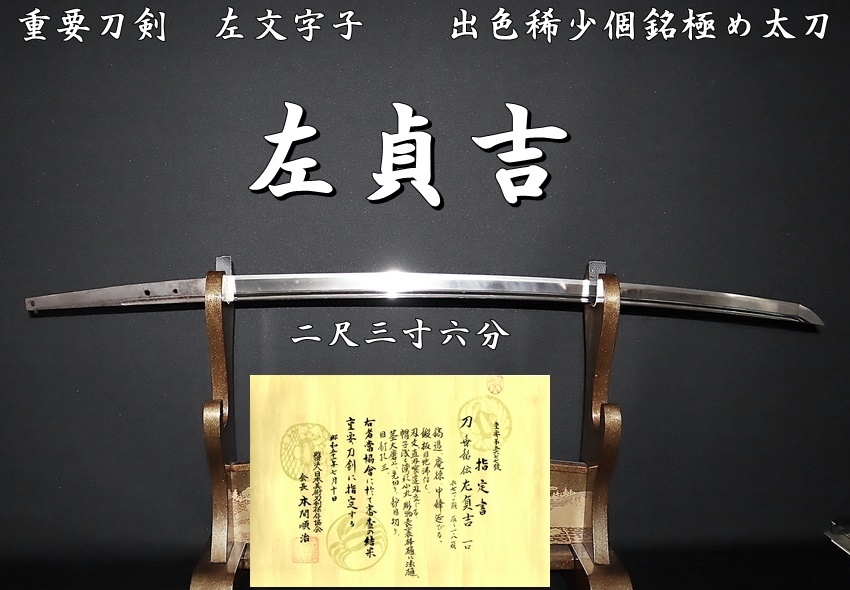 重要刀剣 左文字子 出色稀少個銘極め太刀
左貞吉
二尺三寸六分
指定書
刀 無銘 伝左貞吉 一口
鎬造 庵棟 中鋒延びる、
目釘孔三
右者當協會に於て審査の結果
重要刀剣に指定する
昭和五二年七月十日
財団法人日本美術刀剣保存協会
会長 本間順治